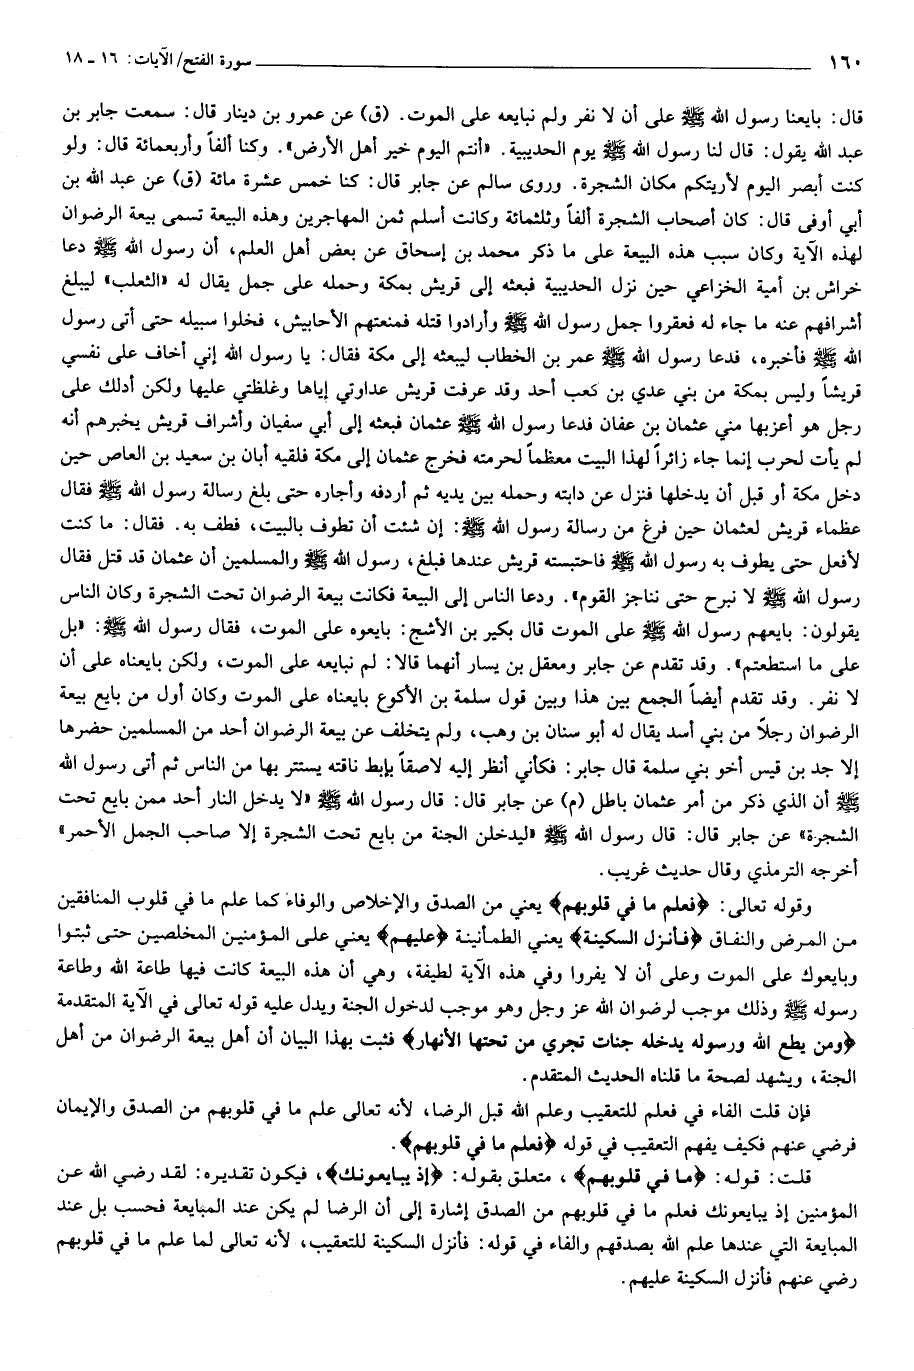 ١٦٠ سورة الفتح/ الآيات: ١٦ ـ ١٨
قال: بايعنا رسول الله ﷺ على أن لا نفر ولم نبايعه على الموت. (ق) عن عمرو بن دينار قال: سمعت جابر بن
عبد الله يقول: قال لنا رسول الله ﷺ يوم الحديبية. «أنتم اليوم خير أهل الأرض». وكنا ألفاً وأربعمائة قال: ولو
كنت أبصر اليوم لأريتكم مكان الشجرة. وروى سالم عن جابر قال: كنا خمس عشرة مائة (ق) عن عبد الله بن
أبي أوفى قال: كان أصحاب الشجرة ألفاً وثلثمائة وكانت أسلم ثمن المهاجرين وهذه البيعة تسمى بيعة الرضوان
لهذه الآية وكان سبب هذه البيعة على ما ذكر محمد بن إسحاق عن بعض أهل العلم، أن رسول الله ﷺ دعا
خراش بن أمية الخزاعي حين نزل الحديبية فبعثه إلى قريش بمكة وحمله على جمل يقال له «الثعلب» ليبلغ
أشرافهم عنه ما جاء له فعقروا جمل رسول الله ﷺ وأرادوا قتله فمنعتهم الأحابيش، فخلوا سبيله حتى أتى رسول
الله ﷺ فأخبره، فدعا رسول الله ﷺ عمر بن الخطاب ليبعثه إلى مكة فقال: يا رسول الله إني أخاف على نفسي
قريشاً وليس بمكة من بني عدي بن كعب أحد وقد عرفت قريش عداوتي إياها وغلظتي عليها ولكن أدلك على
رجل هو أعزبها مني عثمان بن عفان فدعا رسول الله ﷺ عثمان فبعثه إلى أبي سفيان وأشراف قريش يخبرهم أنه
لم يأت لحرب إنما جاء زائراً لهذا البيت معظماً لحرمته فخرج عثمان إلى مكة فلقيه أبان بن سعيد بن العاص حين
دخل مكة أو قبل أن يدخلها فنزل عن دابته وحمله بين يديه ثم أردفه وأجاره حتى بلغ رسالة رسول الله ﷺ فقال
عظماء قريش لعثمان حين فرغ من رسالة رسول الله ﷺ: إن شئت أن تطوف بالبيت، فطف به. فقال: ما كنت
لأفعل حتى يطوف به رسول الله ﷺ فاحتبسته قريش عندها فبلغ، رسول الله ﷺ والمسلمين أن عثمان قد قتل فقال
رسول الله ﷺ لا نبرح حتى نناجز القوم». ودعا الناس إلى البيعة فكانت بيعة الرضوان تحت الشجرة وكان الناس
يقولون: بايعهم رسول الله ﷺ على الموت قال بكير بن الأشج: بايعوه على الموت، فقال رسول الله ﷺ: «بل
على ما استطعتم». وقد تقدم عن جابر ومعقل بن يسار أنهما قالا: لم نبايعه على الموت، ولكن بايعناه على أن
لا نفر. وقد تقدم أيضاً الجمع بين هذا وبين قول سلمة بن الأكوع بايعناه على الموت وكان أول من بايع بيعة
الرضوان رجلاً من بني أسد يقال له أبو سنان بن وهب، ولم يتخلف عن بيعة الرضوان أحد من المسلمين حضرها
إلا جد بن قيس أخو بني سلمة قال جابر: فكأني أنظر إليه لاصقاً بإبط ناقته يستتر بها من الناس ثم أتى رسول الله
ﷺ أن الذي ذكر من أمر عثمان باطل (م) عن جابر قال: قال رسول الله ﷺ «لا يدخل النار أحد ممن بايع تحت
الشجرة» عن جابر قال: قال رسول الله ﷺ «ليدخلن الجنة من بايع تحت الشجرة إلا صاحب الجمل الأحمر»
أخرجه الترمذي وقال حديث غريب.
وقوله تعالى: ﴿فعلم ما في قلوبهم﴾ يعني من الصدق والإخلاص والوفاء كما علم ما في قلوب المنافقين
من المرض والنفاق ﴿فأنزل السكينة﴾ يعني الطمأنينة ﴿عليهم﴾ يعني على المؤمنين المخلصين حتى ثبتوا
وبايعوك على الموت وعلى أن لا يفروا وفي هذه الآية لطيفة، وهي أن هذه البيعة كانت فيها طاعة الله وطاعة
رسوله ﷺ وذلك موجب لرضوان الله عز وجل وهو موجب لدخول الجنة ويدل عليه قوله تعالى في الآية المتقدمة
﴿ومن يطع الله ورسوله يدخله جنات تجري من تحتها الأنهار﴾ فثبت بهذا البيان أن أهل بيعة الرضوان من أهل
الجنة، ويشهد لصحة ما قلناه الحديث المتقدم.
فإن قلت الفاء في فعلم للتعقيب وعلم الله قبل الرضا، لأنه تعالى علم ما في قلوبهم من الصدق والإيمان
فرضي عنهم فكيف يفهم التعقيب في قوله ﴿فعلم ما في قلوبهم﴾.
قلت: قوله: ﴿ما في قلوبهم﴾، متعلق بقوله: ﴿إذ يبايعونك﴾، فيكون تقديره: لقد رضي الله عن
المؤمنين إذ يبايعونك فعلم ما في قلوبهم من الصدق إشارة إلى أن الرضا لم يكن عند المبايعة فحسب بل عند
المبايعة التي عندها علم الله بصدقهم والفاء في قوله: فأنزل السكينة للتعقيب، لأنه تعالى لما علم ما في قلوبهم
رضي عنهم فأنزل السكينة عليهم.